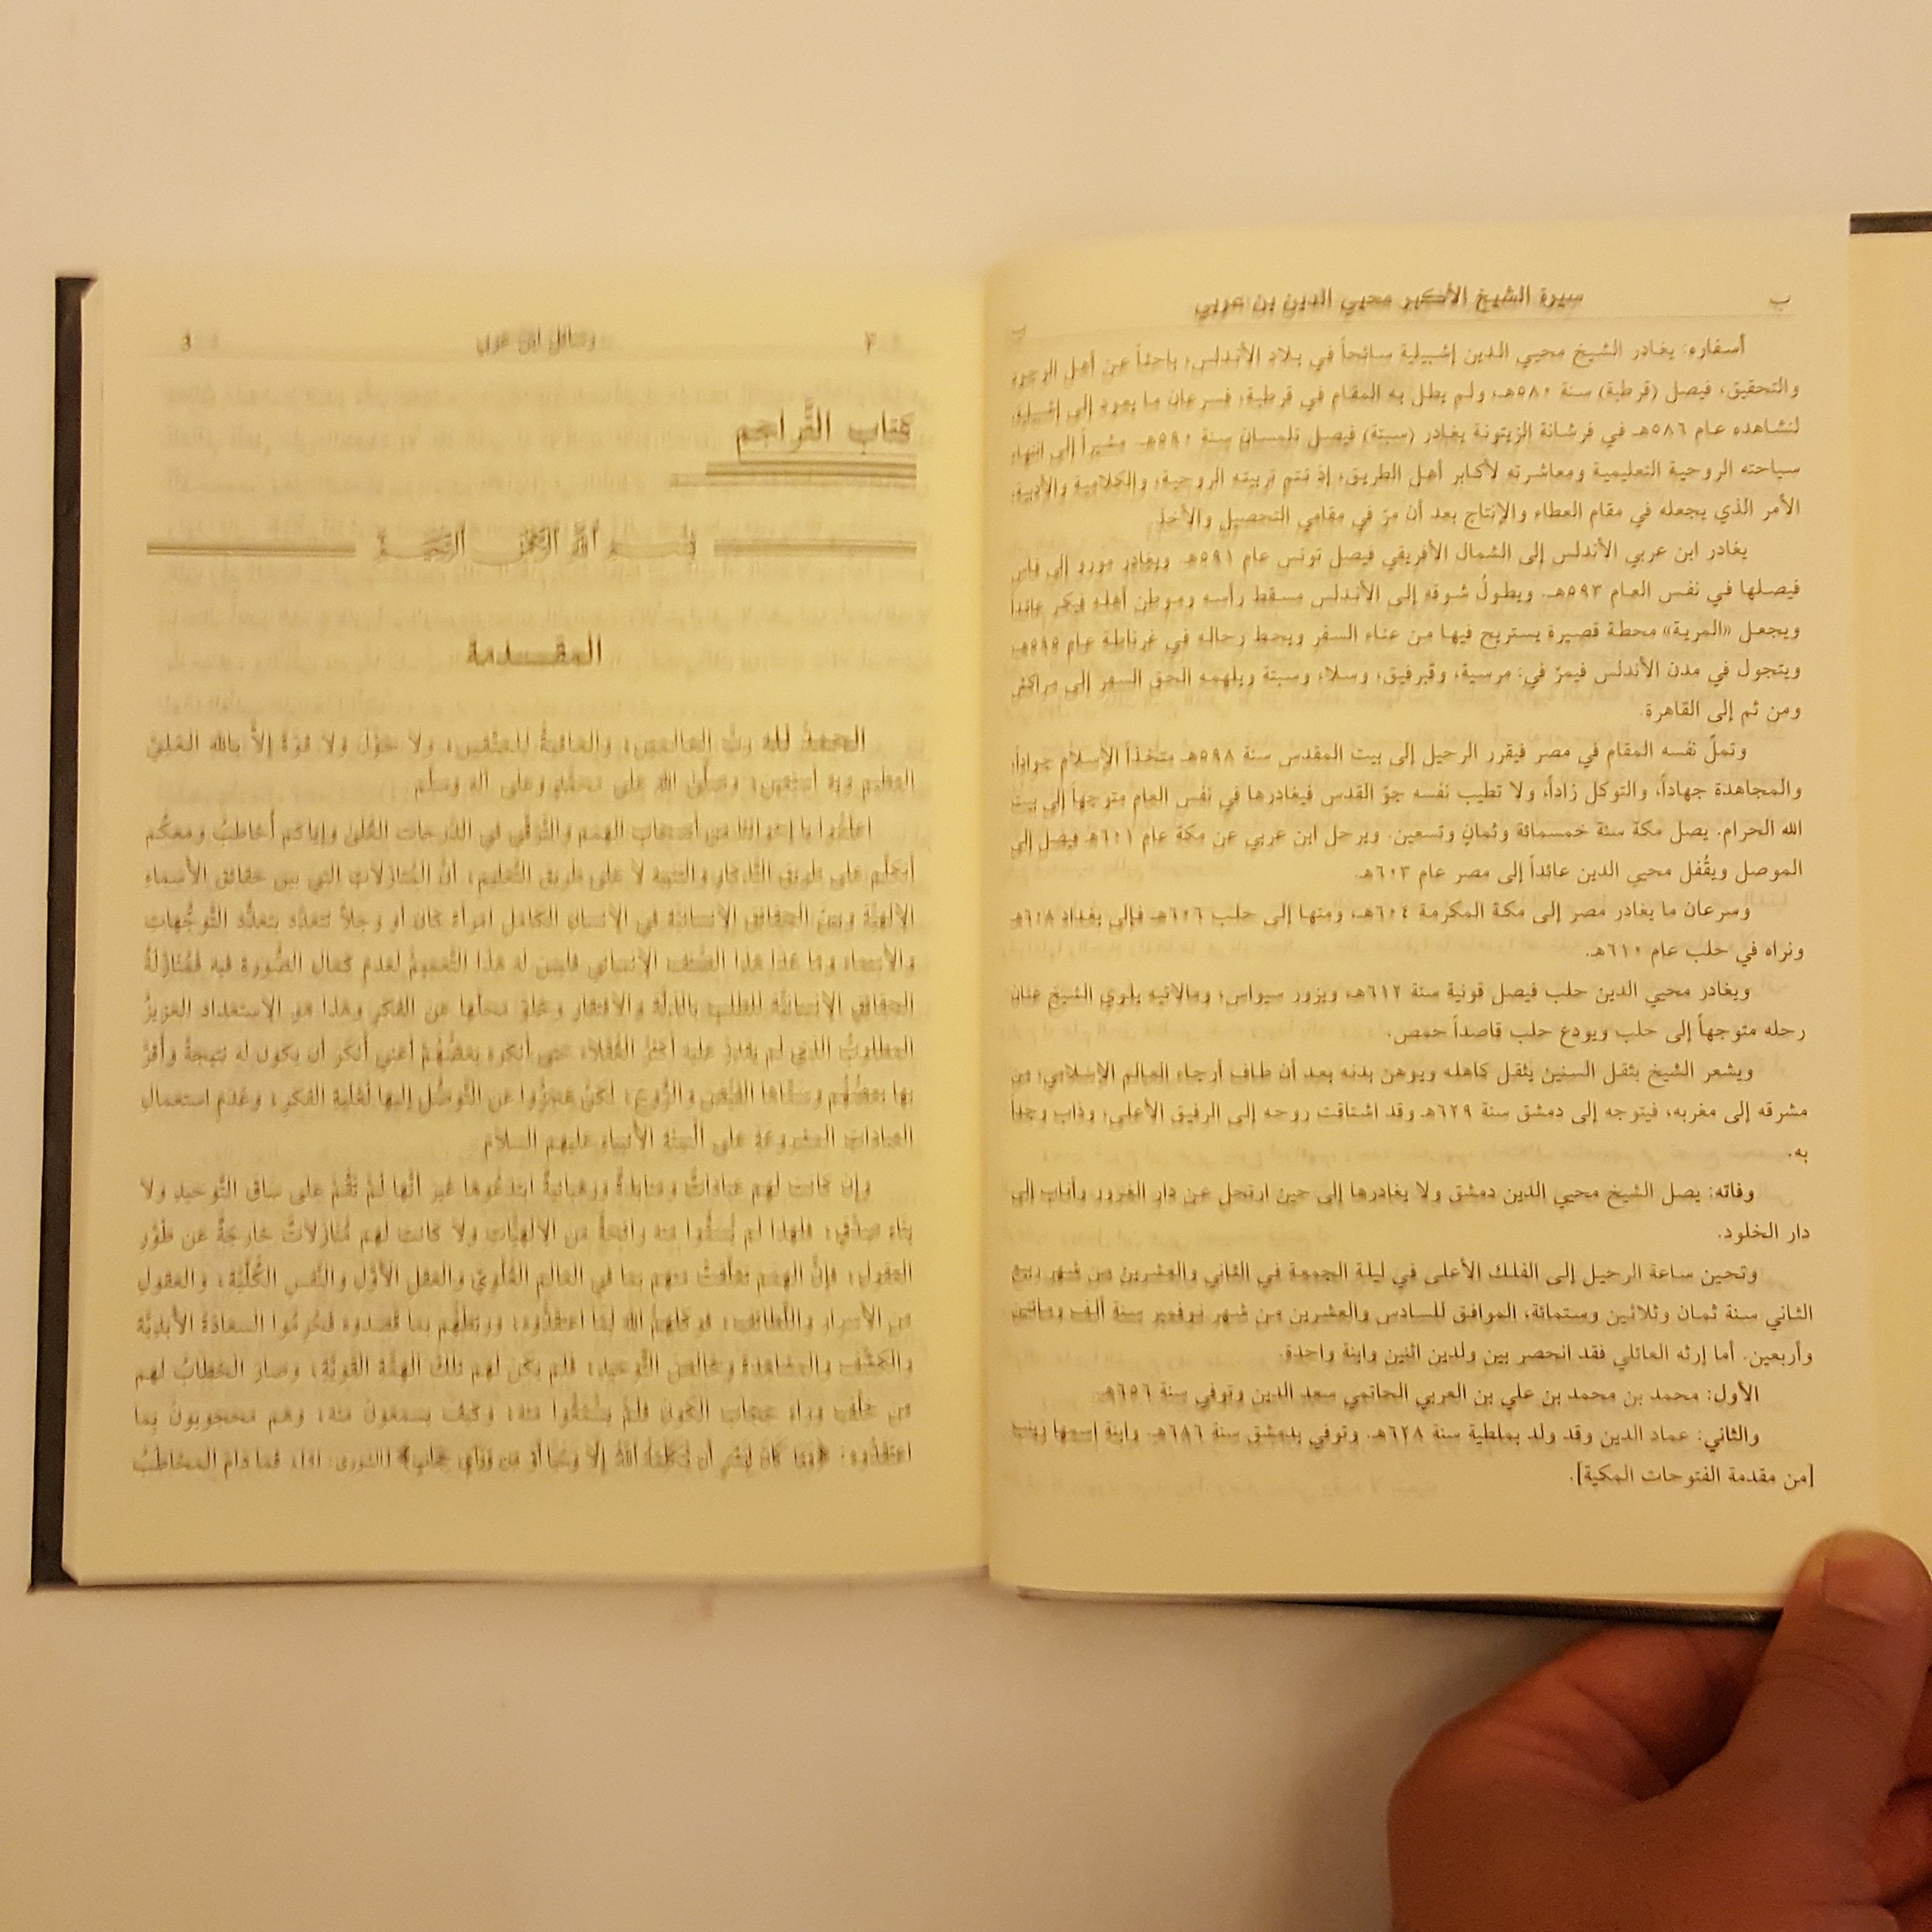 ب
سيرة الشيخ الأكبر محيي الدين بن عربي
أسفاره: يغادر الشيخ محيي الدين إشبيلية سائحاً في بلاد الأندلس، باحثاً عن أهل
والتحقيق، فيصل (قرطبة) سنة ٥٨٠هـ، ولم يطل به المقام في قرطبة، فسرعان ما يعود إلى إشبيلية
لنشاهده عام ٥٨٦هـ في فرشانة الزيتونة يغادر (سبتة) فيصل تلمسان سنة ٥٩٠هـ مشيراً إلى انتهاء
سياحته الروحية التعليمية ومعاشرته لأكابر أهل الطريق، إذ تتم تربيته الروحية، والكلامية والأدبية،
الأمر الذي يجعله في مقام العطاء والإنتاج بعد أن مرّ في مقامي التحصيل والأخذ.
يغادر ابن عربي الأندلس إلى الشمال الأفريقي فيصل تونس عام ٥٩١هـ. ويغادر إلى فاس
فيصلها في نفس العام ٥٩٣هـ. ويطولُ شوقه إلى الأندلس مسقط رأسه وموطن أهله فيكر عائداً
ويجعل «المرية» محطة قصيرة يستريح فيها من عناء السفر ويحط رحاله في غرناطة عام ٥٩٥هـ
ويتجول في مدن الأندلس فيمرّ في: مرسية، وقبرفيق، وسلا، وسبتة ويلهمه الحق السفر إلى مراكش
ومن ثم إلى القاهرة.
وتملّ نفسه المقام في مصر فيقرر الرحيل إلى بيت المقدس سنة ٥٩٨هـ متخذاً الإسلام جواداً،
والمجاهدة جهاداً، والتوكل زاداً، ولا تطيب نفسه جوّ القدس فيغادرها في نفس العام متوجهاً إلى بيت
الله الحرام. يصل مكة سنة خمسمائة وثمانٍ وتسعين. ويرحل ابن عربي عن مكة عام ٦٠١هـ فيصل إلى
الموصل ويقُفل محيي الدين عائداً إلى مصر عام ٦٠٣هـ.
وسرعان ما يغادر مصر إلى مكة المكرمة ٦٠٤هـ، ومنها إلى حلب ٦٠٦هـ فإلى بغداد ٦٠٨هـ
ونراه في حلب عام ٦١٠هـ.
ويغادر محيي الدين حلب فيصل قونية سنة ٦١٢هـ، ويزور سيواس، ومالاتيه يلوي الشيخ عنان
رحله متوجهاً إلى حلب ويودع حلب قاصداً حمص.
ويشعر الشيخ بثقل السنين يثقل كاهله ويوهن بدنه بعد أن طاف أرجاء العالم الإسلامي، من
مشرقه إلى مغربه، فيتوجه إلى دمشق سنة ٦٢٩هـ وقد اشتاقت روحه إلى الرفيق الأعلى، وذاب وجداً
به.
وفاته: يصل الشيخ محيي الدين دمشق ولا يغادرها إلى حين ارتحل عن دار الغرور وأناب إلى
دار الخلود.
وتحين ساعة الرحيل إلى الفلك الأعلى في ليلة الجمعة في الثاني والعشرين من شهر ربيع
الثاني سنة ثمان وثلاثين وستمائة، الموافق للسادس والعشرين من شهر نوفمبر سنة ألف ومائتين
وأربعين. أما إرثه العائلي فقد انحصر بين ولدين اثنين وابنة واحدة.
الأول: محمد بن محمد بن علي بن العربي الحاتمي سعد الدين وتوفي سنة ٦٥٦هـ.
والثاني: عماد الدين وقد ولد بملطية سنة ٦٢٨هـ. وتوفي بدمشق سنة ٦٨٦هـ. وابنة اسمها زينب
[من مقدمة الفتوحات المكية].
رسائل ابن عربي
كتاب التَّراجم
بسم الله الرحمن الرحيم
المقدمة
الحمدُ لله ربّ العالمين، والعاقبةُ للمتّقين، ولا حول ولا قوّة إلاَّ بالله العَليّ
العظيم وبه أستعين، وصلّى الله على محمّدٍ وعلى آله وسلّم.
اعلمُوا يا إخواننا من أصحاب الهمم والتَّرقّي في الدَّرجات العُلى وإياكم أُخاطبُ ومعكُم
أتكلّم على طريق التَّذكار والتنبيه لا على طريق التَّعليم، أنَّ المُنازلات التي بين حقائق الأسماء
الإلهيّة وبين الحقائق الإنسانيّة في الإنسان الكامل امرأة كان أو رجلاً تتعدَّد بتعدُّد التَّوجُّهات
والأسماء وما عدا هذا الصِّنف الإنساني فليس له هذا التَّعميمُ لعدم كمال الصُّورة فيه فمُنَازَلةُ
الحقائق الإنسانيَّة للطلب بالذلّة والافتقار وخلوّ محلّها عن الفكر وهذا هو الاستعداد العزيزُ
المطلوبُ الذي لم يقدرْ عليه أكثرُ العُقلاء حتى أنكره بعضُهُمْ أعني أنكر أن يكون له نتيجةٌ وأقرَّ
بها بعضُهُم وسمَّاها الفَيْضَ والرُّوع، لكنْ عجزُوا عن التَّوصُّل إليها لغلبة الفكر، وعدم استعمال
العبادات المشروعة على ألسنة الأنبياء عليهم السلام.
وإن كانت لهم عباداتٌ ورهبانيةٌ ابتدعُوها غير أنَّها لمْ تقُمْ على ساق التَّوحيد ولا
بناء صدْقٍ، فلهذا لم يُشمُّوا منه رائحةً من الإلهيَّات ولا كانت لهم مُنَازَلاتٌ خارجةٌ عن طَوْر
العقول، فإنَّ الهمم تعلّقتْ منهم بما في العالم العُلْويّ والعقل الأوّل والنَّفس الكُلّيّة، والعقول
من الأسرار واللّطائف، الله لما اعتقدُوه، بما قصدوه السعادة الأبديّة
والكشْف والمشاهدة وخالص التَّوحيد، فلم يكن لهم تلك الهمّة القويّة، وصار الخطابُ لهم
من خلف وراء حجاب الكون فلمْ منه، وكيف يسمعُون منه، وهم محجوبونَ بما
اعتقدُوه: ﴿وَمَا كَانَ لِبَشَرٍ أَن يُكَلِّمَهُ اللَّهُ إِلَّا وَحْيًا أَوْ مِن وَرَآيِ حِجَابٍ﴾ [الشورى: ٥١]، فما دام المخاطَبُ